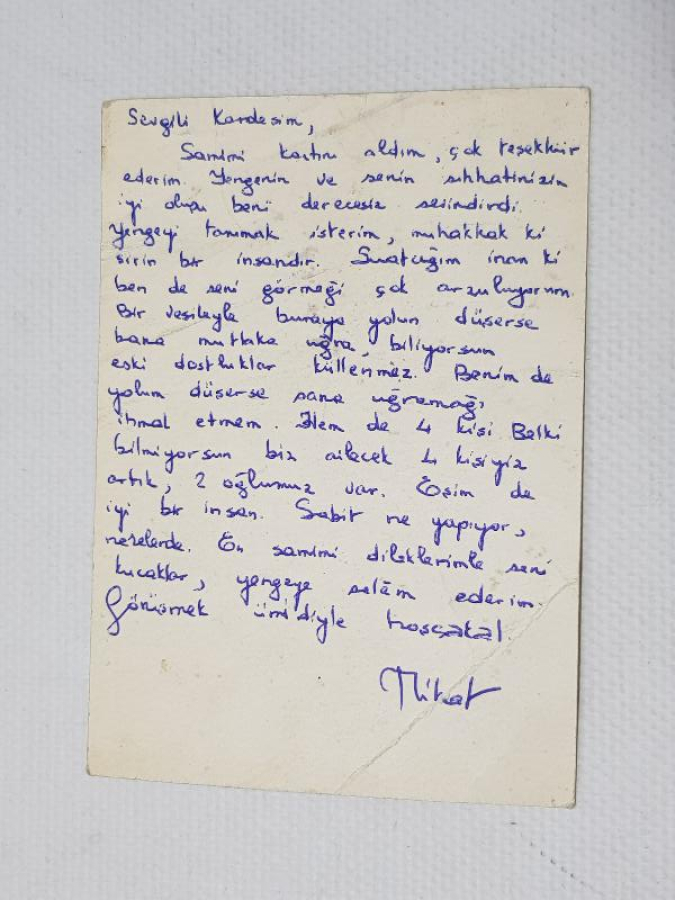 Sevgili Kardeşim,
Samimi kartını aldım, çok teşekkür
ederim. Yengenin ve senin sıhhatinizin
iyi oluşu beni derecesiz sevindirdi.
Yengeyi tanımak isterim, muhakkak ki
şirin bir insandır. Suatcığım inan ki
ben de seni görmeği çok arzuluyorum.
Bir vesileyle buraya yolun düşerse
bana mutlaka uğra, biliyorsun
eski dostluklar küllenmez. Benim de
yolum düşerse sana uğramağı
ihmal etmem. Hem de 4 kişi Belki
bilmiyorsun biz ailecek 4 kişiyiz
artık, 2 oğlumuz var. Eşim de
iyi bir insan. Sabit ne yapıyor,
nerelerde. En samimi dileklerimle seni
kucaklar, yengeye selâm ederim.
Görüşmek ümidiyle hoşçakal.
Mithat